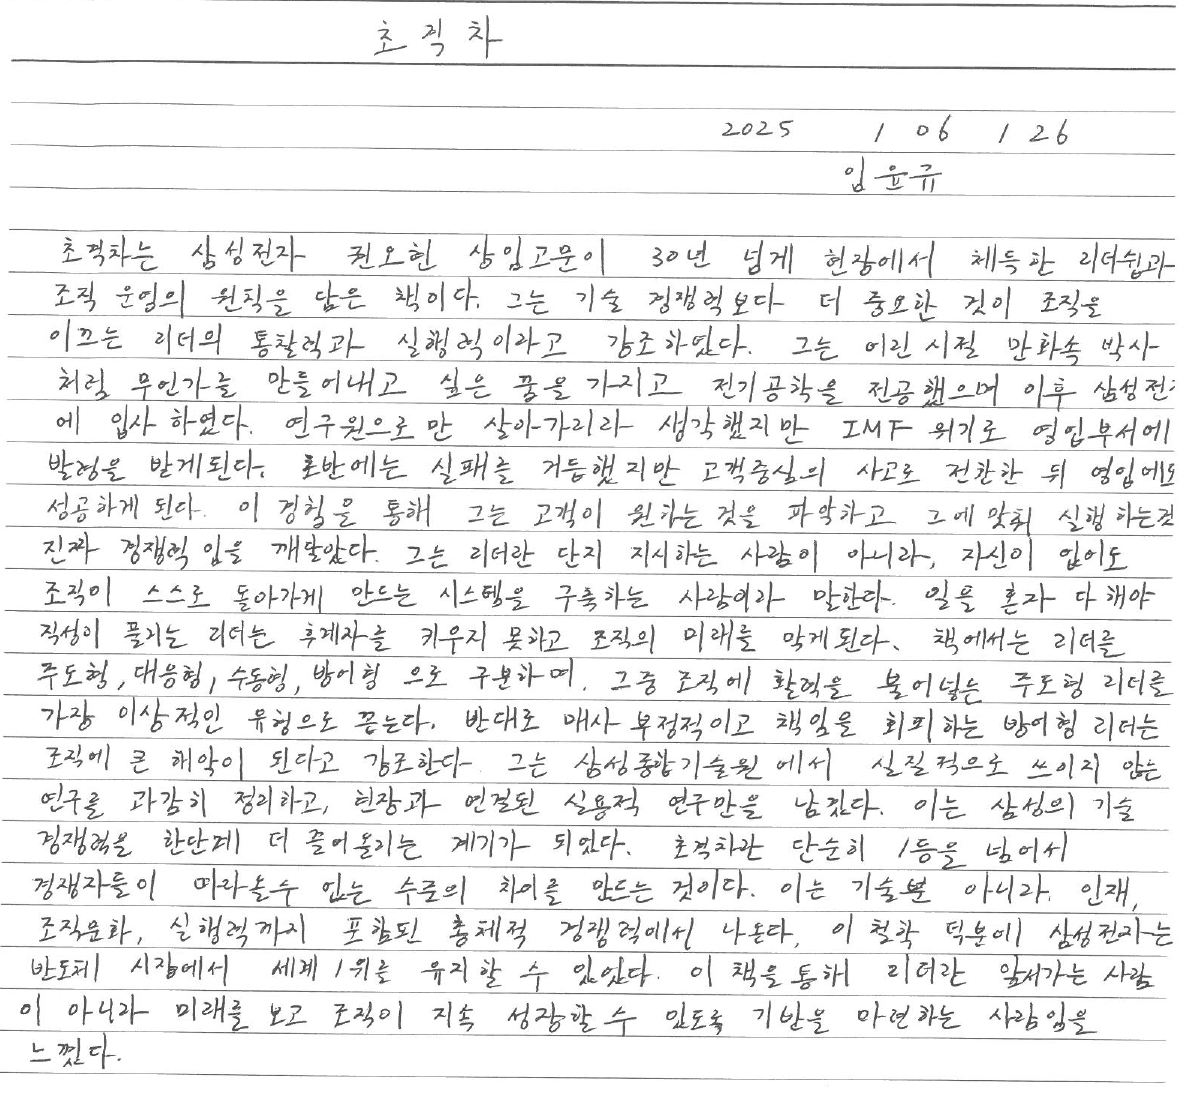 초격차
2025 / 06 / 26
임윤규
초격차는 삼성전자 권오현 상임고문이 30년 넘게 현장에서 체득한 리더쉽과
조직 운영의 원칙을 담은 책이다. 그는 기술 경쟁력보다 더 중요한 것이 조직을
이끄는 리더의 통찰력과 실행력이라고 강조하였다. 그는 어린시절 만화속 박사
처럼 무언가를 만들어내고 싶은 꿈을 가지고 전기공학을 전공했으며 이후 삼성전자
에 입사 하였다. 연구원으로만 살아가리라 생각했지만 IMF 위기로 영업부서에
발령을 받게된다. 초반에는 실패를 거듭했지만 고객중심의 사고로 전환한 뒤 영업에도
성공하게 된다. 이 경험을 통해 그는 고객이 원하는 것을 파악하고 그에 맞춰 실행하는것
진짜 경쟁력 임을 깨달았다. 그는 리더란 단지 지시하는 사람이 아니라, 자신이 없어도
조직이 스스로 돌아가게 만드는 시스템을 구축하는 사람이라 말한다. 일을 혼자 다해야
직성이 풀리는 리더는 후계자를 키우지 못하고 조직의 미래를 막게된다. 책에서는 리더를
주도형, 대응형, 수동형, 방어형 으로 구분하며, 그중 조직에 활력을 불어넣는 주도형 리더를
가장 이상적인 유형으로 꼽는다. 반대로 매사 부정적이고 책임을 회피하는 방어형 리더는
조직에 큰 해악이 된다고 강조한다. 그는 삼성종합기술원에서 실질적으로 쓰이지 않는
연구를 과감히 정리하고, 현장과 연결된 실용적 연구만을 남겼다. 이는 삼성의 기술
경쟁력을 한단계 더 끌어올리는 계기가 되었다. 초격차란 단순히 1등을 넘어서
경쟁자들이 따라올수 없는 수준의 차이를 만드는 것이다. 이는 기술뿐 아니라. 인재,
조직문화, 실행력까지 포함된 총체적 경쟁력에서 나온다. 이 철학 덕분에 삼성전자는
반도체 시장에서 세계 1위를 유지할 수 있었다. 이 책을 통해 리더란 앞서가는 사람
이 아니라 미래를 보고 조직이 지속 성장할 수 있도록 기반을 마련하는 사람임을
느꼈다.